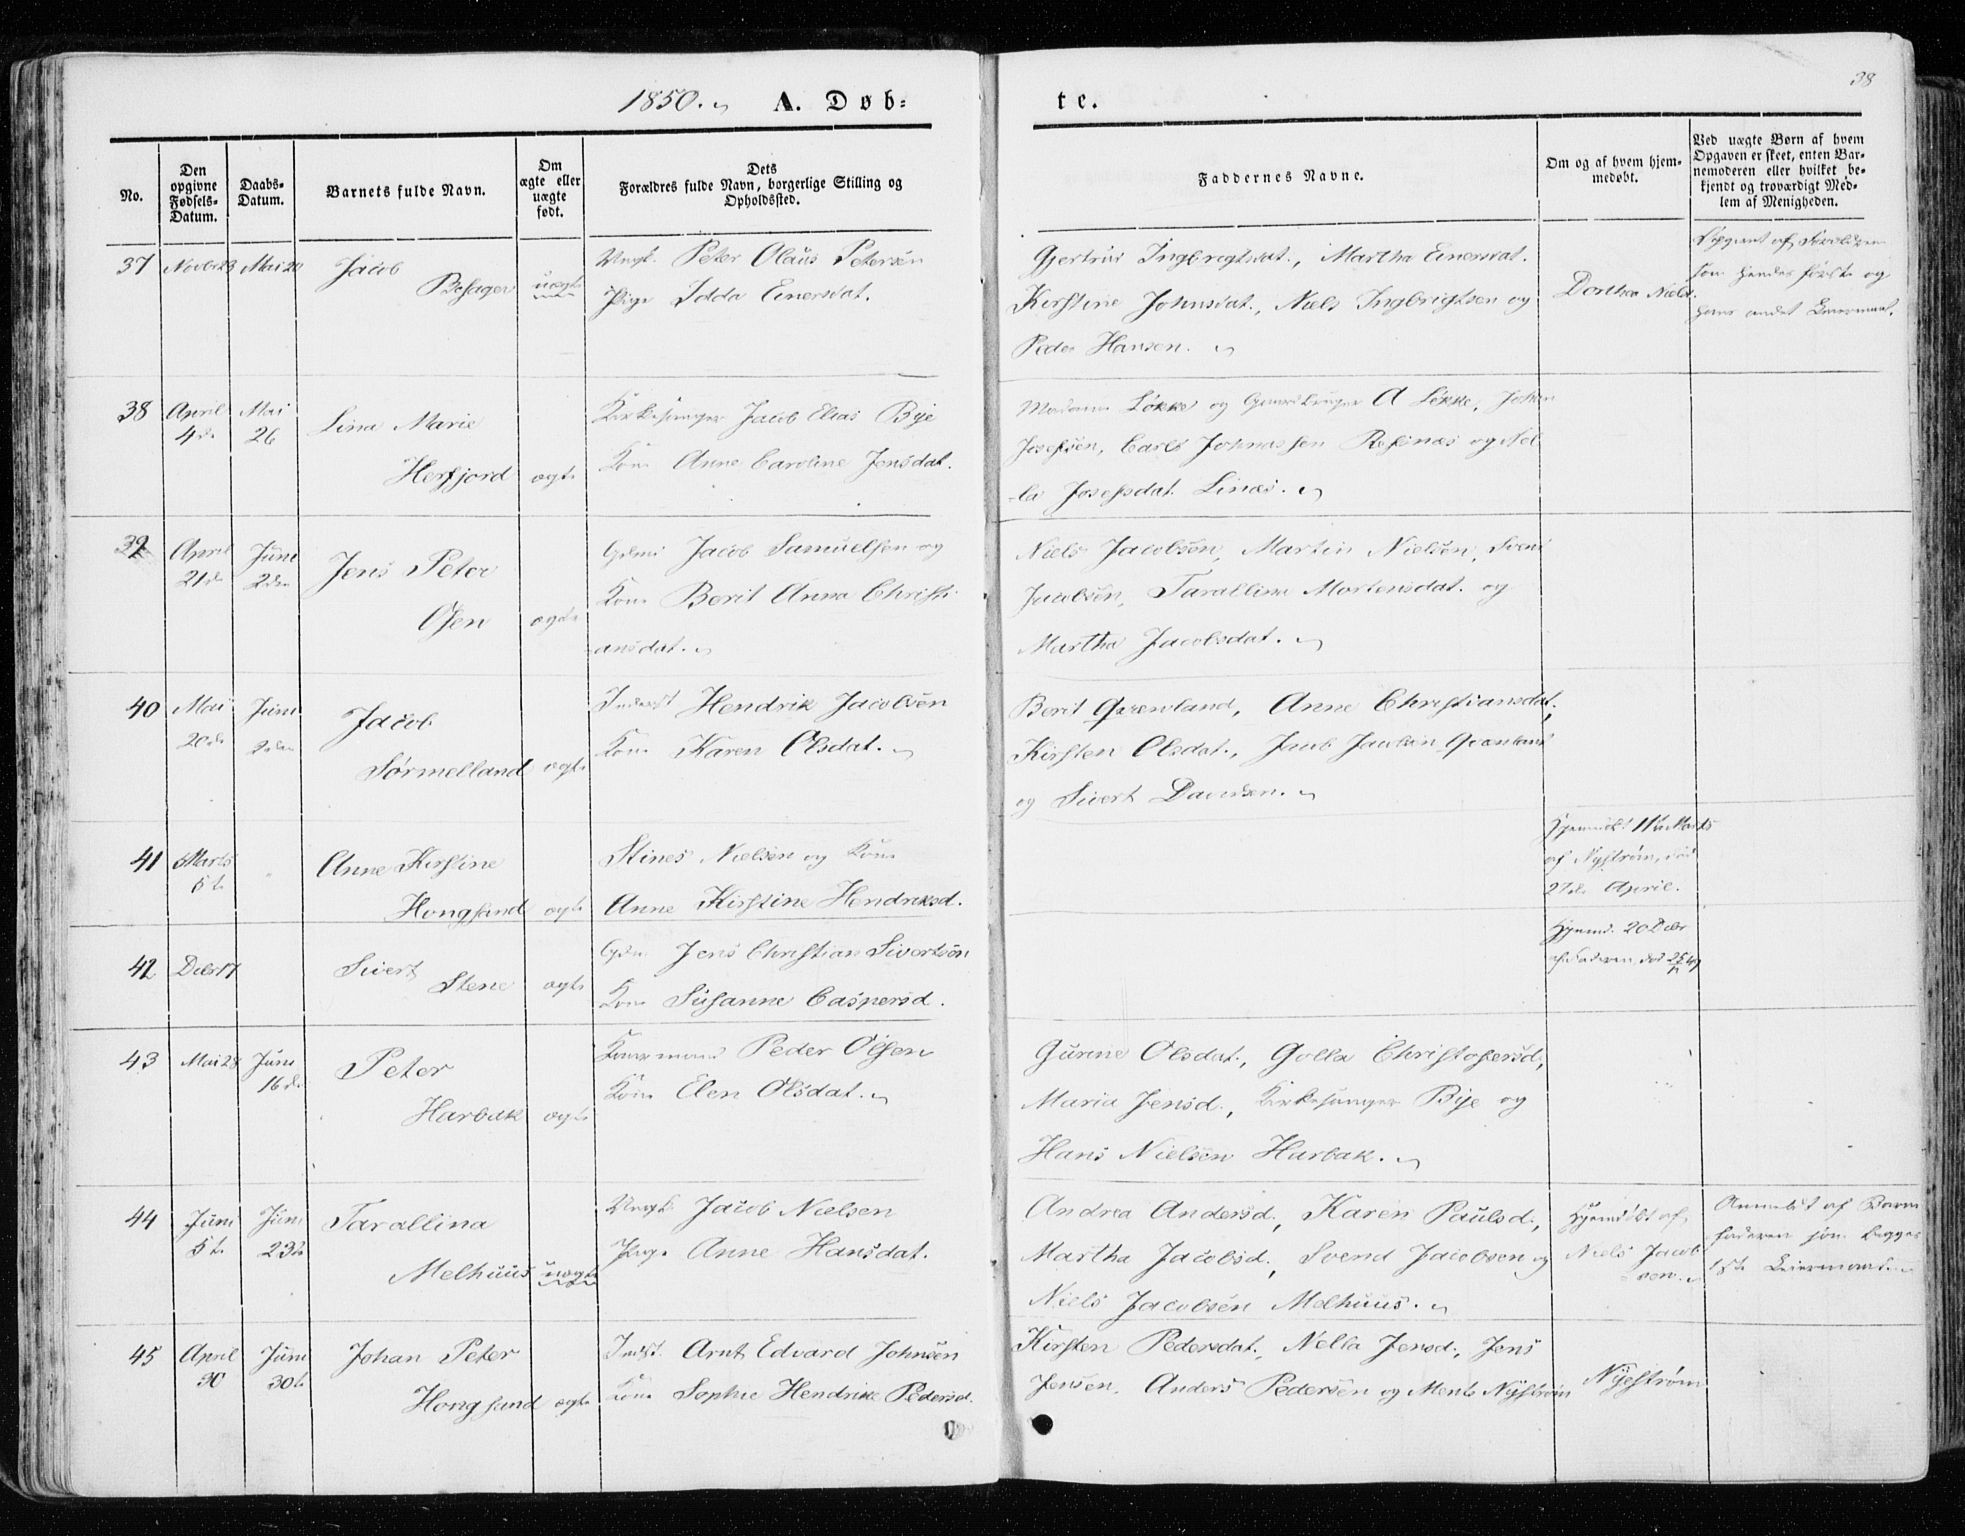 38
1850. A. Døb= te.
No.
Den opgivne Fødsels-Datum.
Daabs-Datum.
Barnets fulde Navn.
Om ægte eller uægte født.
Dets Forældres fulde Navn, borgerlige Stilling og Opholdssted.
Faddernes Navne.
Om og af hvem hjem-medøbt.
Ved uægte Børn af hvem Opgaven er skeet, enten Bar-nemoderen eller hvilket be-kjendt og troværdigt Med-lem af Menigheden.
37 Novbr 23 Mai 20 Jacob
Besager uægte
Ungk. Peter Olaus Petersen
Pige Idda Einersdat.
Gjertrud Ingbrigtsdat., Martha Einersdat.
Kirstine Johnsdat., Niels Ingbrigtsen og
Peder Hansen.
Dorthea Nielsd.
som hendes første og
hans andet Leiermaal.
38 April Mai
4de 26 Lina Marie
Herfjord ægte
Kirkesanger Jacob Elias Bye
Kone Anne Caroline Jensdat.
Madame Løkke og A Løkke, Johan
Josefsen, Carl Johnassen Refsnæs og Nel-
la Josefsdat. Linæs.
39 April Juni
21de 2den Jens Peter
Osen ægte
Gdmd Jacob Samuelsen og
Kone Berit Anna Christi-
ansdat.
Niels Jacobsen, Martin Nielsen, Svend
Jacobsen, Tarallina Mortensdat. og
Martha Jacobsdat.
40 Mai Juni
20de 2den Jacob
Sørmelland ægte
Inderst Hendrik Jacobsen
Kone Karen Olsdat.
Berit Qvænland, Anne Christiansdat.,
Kirsten Olsdat., Jacob Jacobsen Qvænland
og Sivert Davidsen.
41 Marts
5te Anne Kirstine
Hongsand ægte
Stines Nielsen og Kone
Anne Kirstine Hendriksd.
Hjemdøbt 11te Marts
af Nystrøm, død
27de April.
42 Dcbr 17 Sivert
Stene ægte
Gdm. Jens Christian Sivertsen
Kone Susanne Caspersd.
Hjemd. 20 Dcbr
af Faderen, død
43 Mai 28 Juni
16de Peter
Harbak ægte
Kaarmand Peder Olsen
Kone Elen Olsdat.
Gurine Olsdat., Golla Christofersd.,
Maria Jensd., Kirkesanger Bye og
Hans Nielsen Harbak.
44 Juni Juni
5te 23de Tarallina
Melhuus uægte
Ungk. Jacob Nielsen
Pige Anne Hansdat.
Andrea Andersd., Karen Paulsd.,
Martha Jacobsd., Svend Jacobsen og
Niels Jacobsen Melhuus.
Hjemdøbt af
Niels Jacob-
sen.
Anmeldt af Barne-
faderen som begges
1ste Leiermaal
45 April Juni
30 30te Johan Peter
Hongsand ægte
Indst. Arnt Edvard Johnsen
Kone Sophie Hendrike Pedersd.
Kirsten Pedersdat., Nella Jensd., Jens
Jensen, Anders Pedersen og Mentz Nyström
Nyestrøm